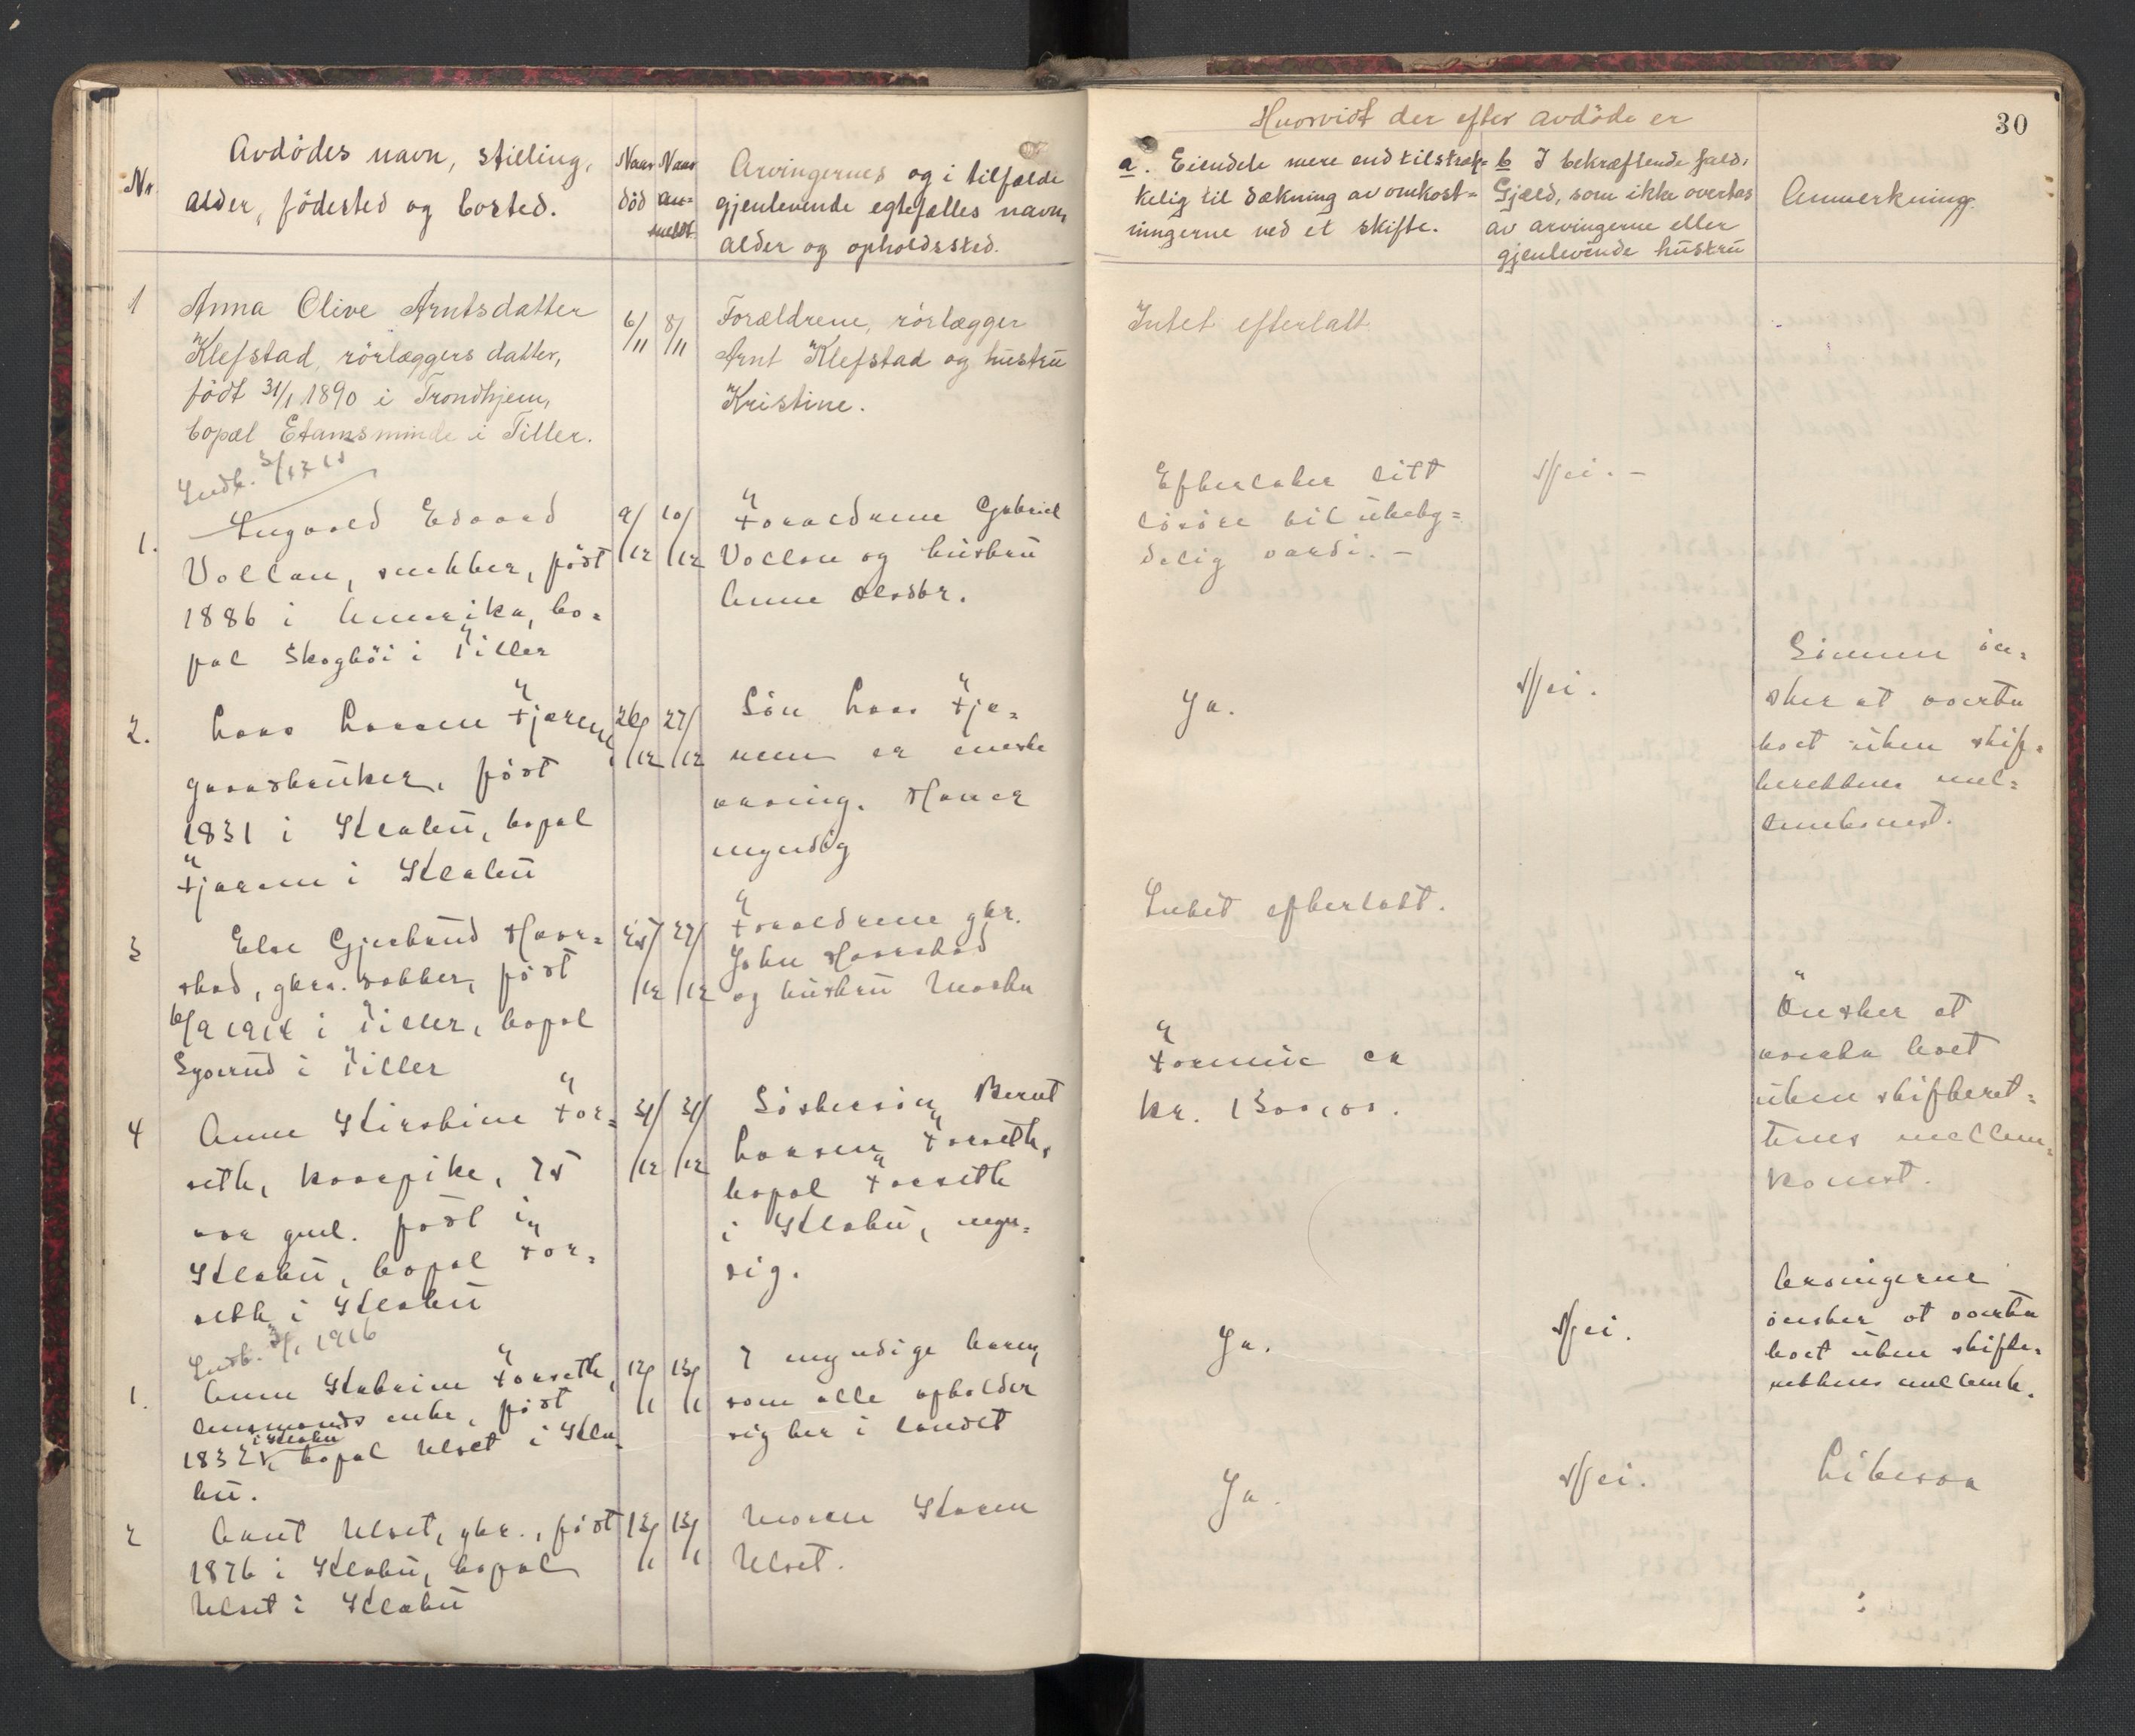 Avdödes navn, stilling,
Nr. alder, födested og bosted.
Naar död
Naar an=
meldt
Arvingernes og i tilfælde
gjenlevende egtefælles navn,
alder og opholdssted.
Hvorvidt der efter avdöde er
30
a. Eiendele mere end tilstræk=
kelig til dækning av omkost=
ningerne ved et skifte.
b I bekræftende fald,
Gjæld, som ikke overtas
av arvingerne eller
gjenlevende hustru
Anmerkning.
1 Anna Olive Arntsdatter
Klefstad, rörlæggers datter,
födt 31/1 1890 i Trondhjem,
bopæl Estamsminde i Tiller.
6/11 8/11
Forældrene, rörlægger
Arnt Klefstad og hustru
Kristine.
Intet efterlatt.
Indb. 3/12 15
1. Ingvald Edvard
Vollan, snekker, födt
1886 i Amerika, bo=
pæl Skoghöi i Tiller
9/12 10/12
Foraldrene Gabriel
Vollan og hustru
Anne Olsdtr.
Efterlater litt
lösöre til ubety=
delig værdi. -
Nei. -
2. Lars Larsen Fjærem
gaardbruker, födt
1831 i Klæbu, bopæl
Fjærem i Klæbu
26/12 27/12
Sön Lars Fjæ=
rem er eneste
arving. Han er
myndig
Ja.
Nei.
Sönnen ön=
sker at overta
boet uten skif=
terettens mel=
lemkomst.
3 Else Gjertrud Haar=
stad, gbrs. datter, födt
6/9 1914 i Tiller, bopæl
i Tiller
25/12 27/12
Foraldrene gbr.
John Haarstad
og hustru Marta
Intet efterlatt.
4 Anne Kirstine For=
seth, kaarpike, 75
aar gml. födt i
Klæbu, bopæl For=
seth i Klæbu
31/12 31/12
Söstersön Bernt
Larsen Forseth,
bopæl Forseth
i Klæbu, myn=
dig.
Formue er
kr. 1300,00.
Önsker at
overta boet
uten skifteret=
tens mellem=
komst.
Indb. 3/1 1916
1. Anne Katrine Forseth,
lensmands enke, födt
i Klæbu
1832, bopæl Ulset i Klæ=
bu.
12/1 13/1
7 myndige barn,
som alle opholder
sig her i landet
Ja.
Nei.
Arvingerne
önsker at overta
boet uten skifte=
rettens mellemk.
2 Arnt Ulset, gbr., födt
1876 i Klæbu, bopæl
Ulset i Klæbu
13/1 13/1
Moren Karen
Ulset.
Ja.
Nei.
Likesaa